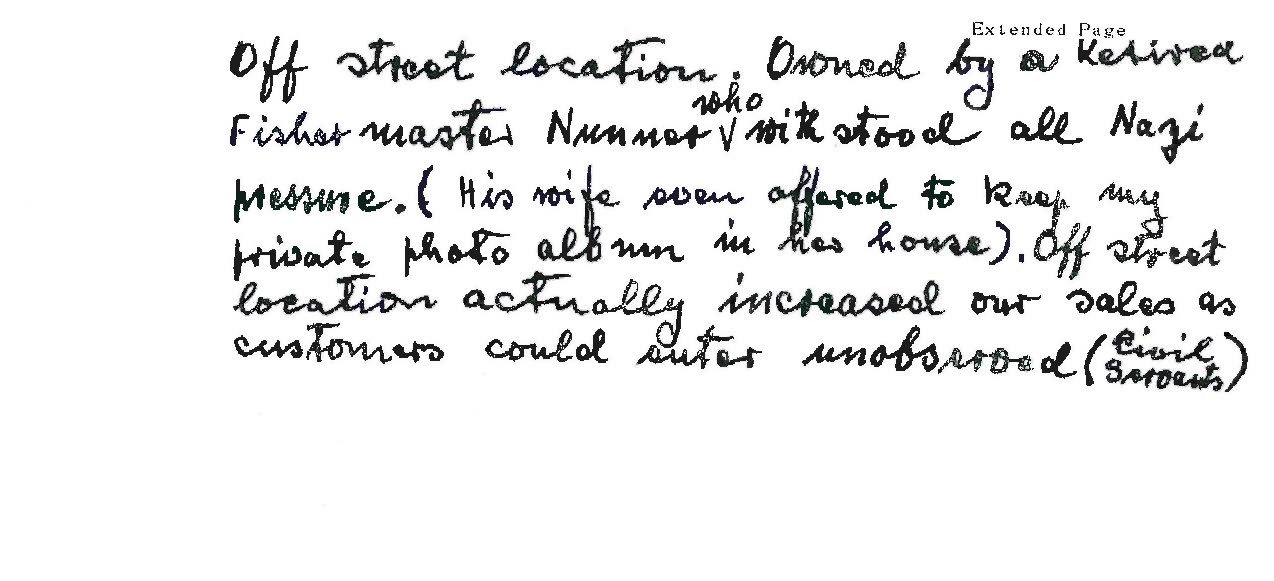 Extended Page
Off street location. Owned by a Retired
who
Fisher master Nunner V withstood all Nazi
pressure. (His wife even offered to keep my
private photo album in her house). Off street
location actually increased our sales as
customers could enter unobserved (Civil
Servants)